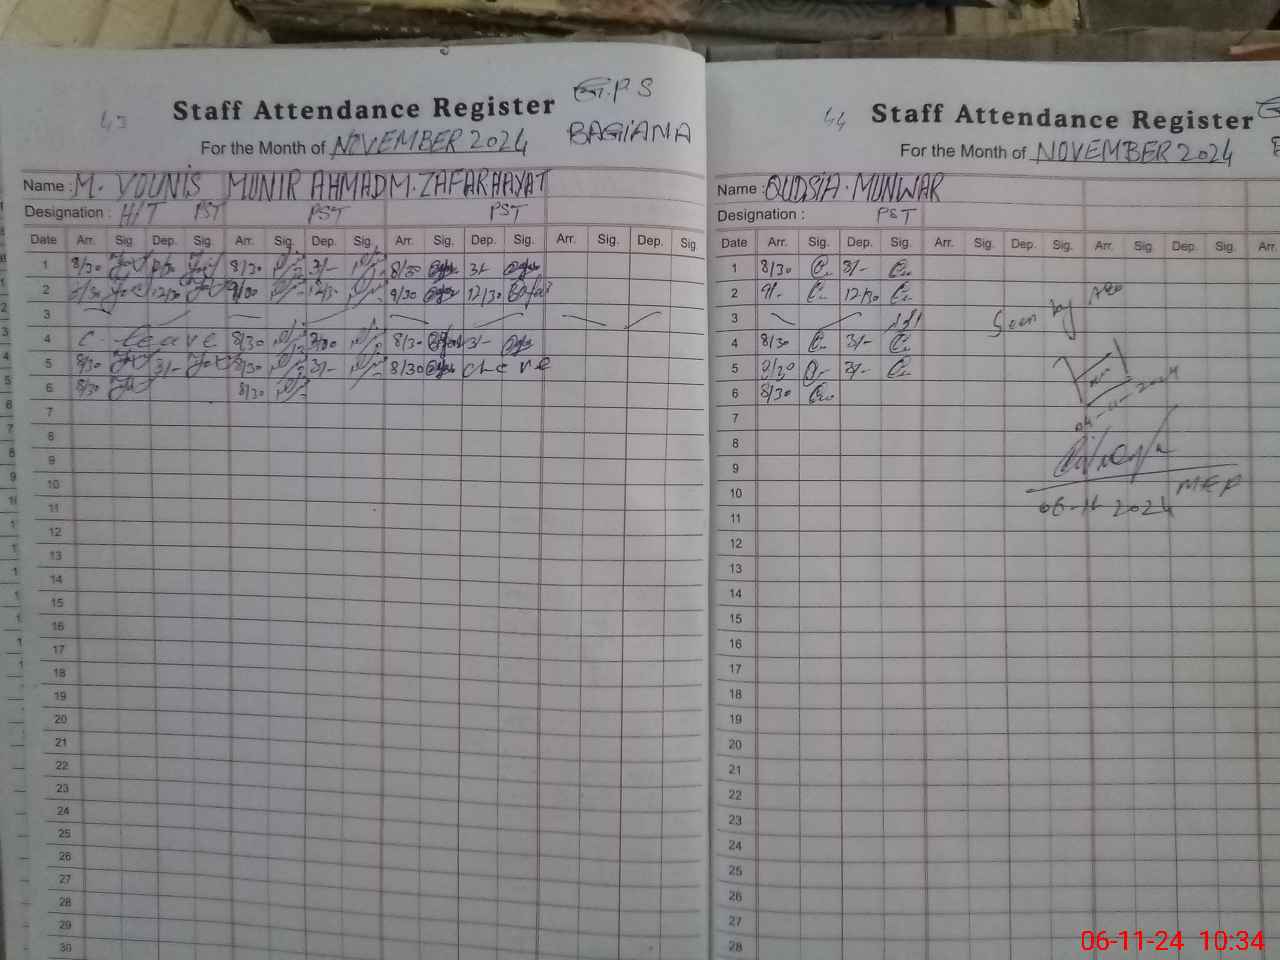 43 Staff Attendance Register G.P.S
For the Month of NOVEMBER 2024 BAGIANA
Name : M. YOUNIS MUNIR AHMAD M. ZAFAR HAYAT
Designation : H/T PST PST PST
Date Arr. Sig. Dep. Sig. Arr. Sig. Dep. Sig. Arr. Sig. Dep. Sig. Arr. Sig. Dep. Sig.
1 8/30 8/30 3/- 8/30 3/-
2 12/30 9/30 12/30
3
4 C. leave 8/30 8/30 3/-
5 3/- 8/30 3/- 8/30
6 8/30 8/30
7
8
9
10
11
12
13
14
15
16
17
18
19
20
21
22
23
24
25
26
27
28
29
30
44 Staff Attendance Register
For the Month of NOVEMBER 2024
Name : QUDSIA MUNWAR
Designation : PST
Date Arr. Sig. Dep. Sig. Arr. Sig. Dep. Sig. Arr. Sig. Dep. Sig. Arr.
1 8/30 3/-
2 9/- 12/30
3 Seen by AEO
4 8/30 3/-
5 3/-
6 8/30
7 04-11-2024
8
9
10 MEA
11 06-11-2024
12
13
14
15
16
17
18
19
20
21
22
23
24
25
26
27
28
06-11-24 10:34